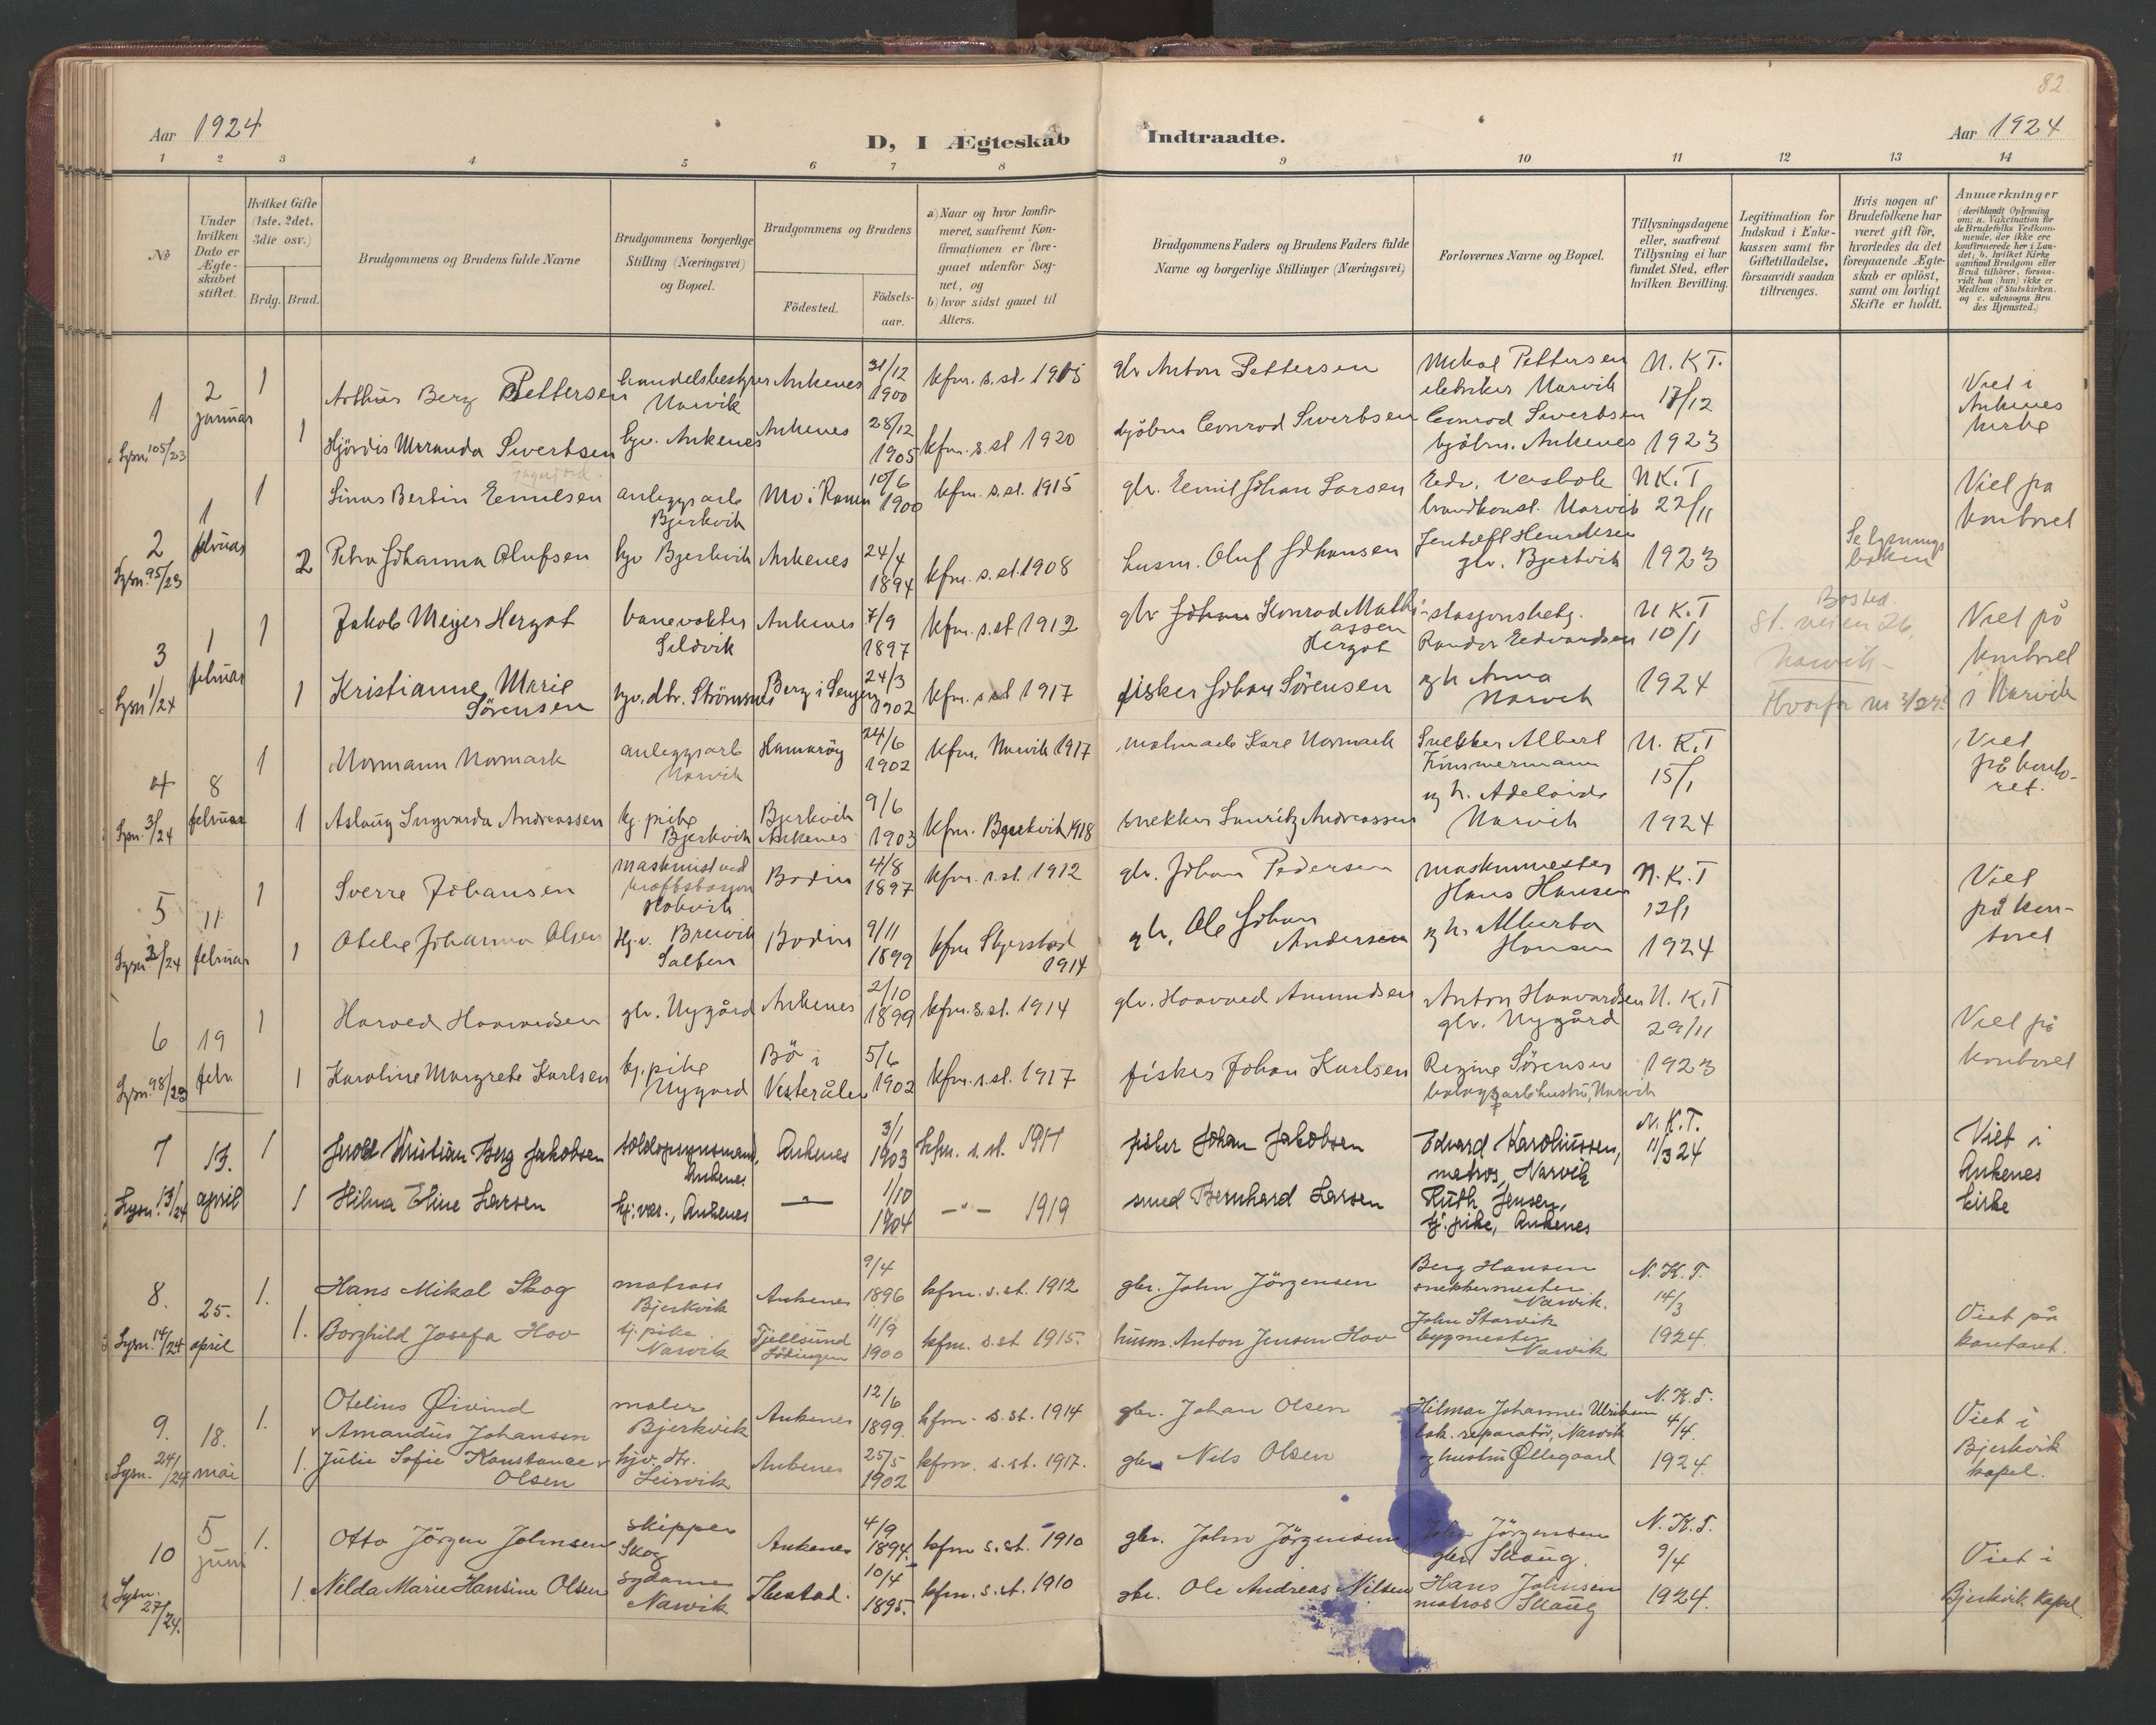 82
Aar 1924
D, I Ægteskab Indtraadte.
Aar 1924
1 2 3 4 5 6 7 8 9 10 11 12 13 14
No
Under hvilken Dato er Ægteskabet stiftet.
Hvilket Gifte (1ste, 2det, 3die osv.)
Brdg. Brud.
Brudgommens og Brudens fulde Navne
Brudgommens borgerlige Stilling (Næringsvei) og Bopæl.
Brudgommens og Brudens
Födested.
Födsels-aar.
a) Naar og hvor konfirmeret, saafremt Konfirmationen er foregaaet udenfor Sognet, og
b) hvor sidst gaaet til Alters.
Brudgommens Faders og Brudens Faders fulde Navne og borgerlige Stillinger (Næringsvei)
Forlovernes Navne og Bopæl.
Tillysningsdagene eller, saafremt Tillysning ei har fundet Sted, efter hvilken Bevilling.
Legitimation for Indskud i Enkekassen samt for Giftetilladelse, forsaavidt saadan tiltrænges.
Hvis nogen af Brudefolkene har været gift för, hvorledes da det foregaaende Ægteskab er oplöst, samt om lovligt Skifte er holdt.
Anmærkninger
(deriblandt Oplysning om: a. Vakcination for de Brudefolks Vedkommende, der ikke ere konfirmerede her i Landet; b. hvilket Kirkesamfund Brudgom eller Brud tilhörer, forsaavidt han (hun) ikke er Medlem af Statskirken. og c. udensogns Brudes Hjemsted.)
1 2 januar 1 Arthur Berg Pettersen handelsbestyrer Narvik Ankenes 31/12 1900 kfm. s.st. 1915 gbr Anton Pettersen Mikal Pettersen Narvik N.K.T. 17/12 1923 Viet i Ankenes kirke
Lysn. 105/23 1 Hjördis Sivertsen hjv. Ankenes Ankenes 28/12 1905 kfm. s.st 1920 Conrad Sivertsen Conrad Sivertsen Ankenes
2 1 februar 1 Linus Bertin Emilsen anleggsarb Bjerkvik Mo i Ranen 10/6 1900 kfm. s.st. 1915 gbr. Emil Johan Larsen Edv. Narvik N.K.T 22/11 1923 Viet på kontoret
Lysn. 95/23 2 Petra Johanna Olufsen hjv Bjerkvik Ankenes 24/4 1894 kfm. s.st. 1908 husm. Oluf Johansen gbr. Bjerkvik Se lysningsboken
3 1 februar 1 Jakob Meyer Hergot banevokter Sildvik Ankenes 7/9 1897 kfm. s.st 1912 gbr Johan Konrad Mathiassen Hergot stasjonsbetj. Randor Edvardsen N.K.T 10/1 1924 Bosted. Narvik Viet på kontoret i Narvik
Lysn 1/24 1 Kristianne Marie Sörensen hjv. dtr. Strömsnes Berg i Senjen 24/3 1902 kfm. s.st 1917 fisker Johan Sörensen og h. Anna Narvik
4 8 februar 1 Normann Normark anleggsarb Narvik Hamaröy 24/6 1902 kfm. Narvik 1917 malmarb Kare Normark Snekker Albert Timmermann og h. Adelaide Narvik N.K.T 15/1 1924 Viet på kontoret.
Lysn. 3/24 1 Aslaug Ingvarda Andreassen hj. pike Bjerkvik Bjerkvik Ankenes 9/6 1903 kfm. Bjerkvik 1918 snekker Lauritz Andreassen
5 11 februar 1 Sverre Johansen maskinist ved kraftstasjon Håkvik Bodin 4/8 1897 kfm. s.st. 1912 gbr. Johan Pedersen maskinmester Hans Hansen og h. Alberta Hansen N.K.T 12/1 1924 Viet på kontoret
Lysn 2/24 1 Otelie Johanna Olsen Hj.v. Breivik Salten Bodin 9/11 1899 kfm Skjerstad 1914 gbr. Ole Johan Andersen
6 19 febr. 1 Harved Haavardsen gbr. Nygård Ankenes 2/10 1899 kfm. s.st. 1914 gbr. Haavard Amundsen Anton Haavardsen gbr. Nygård N.K.T 29/11 1923 Viet på kontoret
Lysn. 98/23 1 Karoline Margrete Karlsen hj. pike Nygård Bö i Vesterålen 5/6 1902 kfm. s.st. 1917 fisker Johan Karlsen Regine Sörensen hustru, Narvik
7 13. april 1 Kristian Berg Jakobsen toldopsynsmand, Ankenes Ankenes 3/1 1903 kfm. s.st. 1917 fisker Johan Jakobsen Edvard Karoliussen, matros, Narvik N.K.T. 11/3 24 Viet i Ankenes kirke
Lysn. 13/24 1 Hilma Eline Larsen hj. vær., Ankenes — " — 1/10 1904 — " — 1919 smed Bernhard Larsen Ruth Jensen, tj. pike, Ankenes
8. 25. april 1. Hans Mikal Skog matros Bjerkvik Ankenes 9/4 1896 kfm. s.st. 1912 gbr. John Jörgensen Berg Hansen snekkermester Narvik. N.K.T. 14/3 1924. Viet på kontoret.
Lysn. 14/24 1. Borghild Josefa Hov tj. pike Narvik Tjellsund Lödingen 11/9 1900 kfm. s.st 1915. husm. Anton Jensen Hov John Storvik bygmester Narvik
9. 18. mai 1. Otelius Øivind Amandus Johansen maler Bjerkvik Ankenes 12/6 1899. kfm. s.st. 1914 gbr. Johan Olsen Hilmar Johannes Ulriksen lok. reparatör, Narvik N.K.T. 4/4. 1924. Viet i Bjerkvik kapel.
Lysn. 24/24 1. Julie Sofie Konstanse Olsen hjv. dtr. Leirvik Ankenes 25/5 1902 kfm. s.st. 1917. gbr Nils Olsen og hustru Øllegaard
10 5 juni 1. Otto Jörgen Johnsen skipper Skog Ankenes 4/9 1894. kfm s.st. 1910 gbr. John Jörgensen John Jörgensen gbr Skaug. N.K.T. 9/4 1924. Viet i Bjerkvik kapel
Lysn. 27/24. 1. Nilda Marie Hansine Olsen sydame Narvik Ibestad. 10/4 1895. kfm. s.st. 1910 gbr. Ole Andreas Nilsen Hans Johnsen matros Skaug